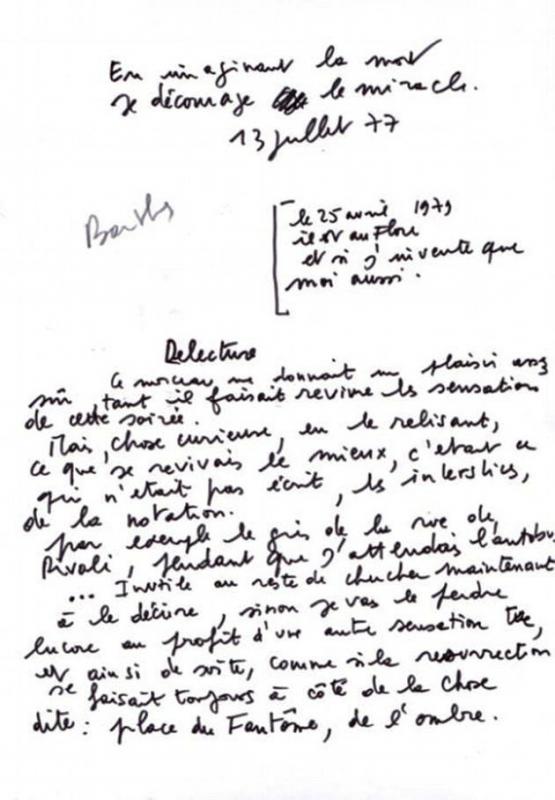 En imaginant la mort
je décourage le miracle.
13 juillet 77
Barthes
le 25 avril 1979
il est au Flore
et si j'invente que
moi aussi.
Relecture
Ce morceau me donnait un plaisir assez
sûr, tant il faisait revivre les sensations
de cette soirée.
Mais, chose curieuse, en le relisant,
ce que je revivais le mieux, c'était ce
qui n'était pas écrit, les interstices,
de la notation.
par exemple le gris de la rue de
Rivoli, pendant que j'attendais l'autobus
... Inutile au reste de chercher maintenant
à le décrire, sinon je vais le perdre
encore au profit d'une autre sensation
et ainsi de suite, comme si la resurrection
se faisait toujours à côté de la chose
dite : place du Fantôme, de l'ombre.